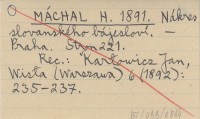 MÁCHAL H. 1891. Nákres
slovanského bájesloví. —
Praha. Stron 221.
Rec.: Karłowicz Jan,
Wisła (Warszawa) 6 (1892):
235-237.